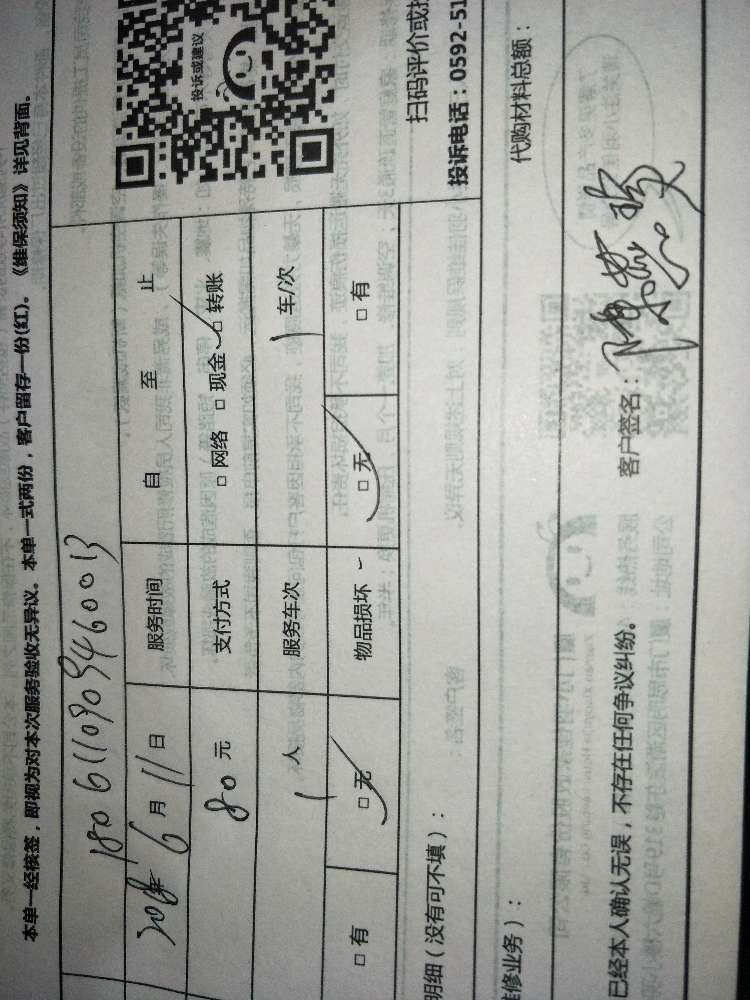 本单一经核签，即视为对本次服务验收无异议。本单一式两份，客户留存一份(红)。《维保须知》详见背面。
1806110909460013
2018年6月11日 服务时间 自 至 止
80元 支付方式 □网络 □现金 □转账
1人 服务车次 1车/次
□有 □无 物品损坏 □无 □有
投诉或建议
扫码评价或投
投诉电话：0592-51
明细（没有可不填）：
代购材料总额：
修业务）：
已经本人确认无误，不存在任何争议纠纷。 客户签名：